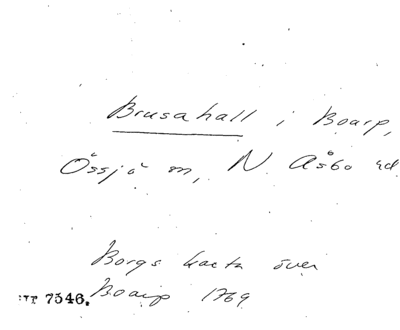 Brusahall i Boarp,
Össjö m, N. Åsbo hd
Borgs karta över
Boarp 1769
7546.